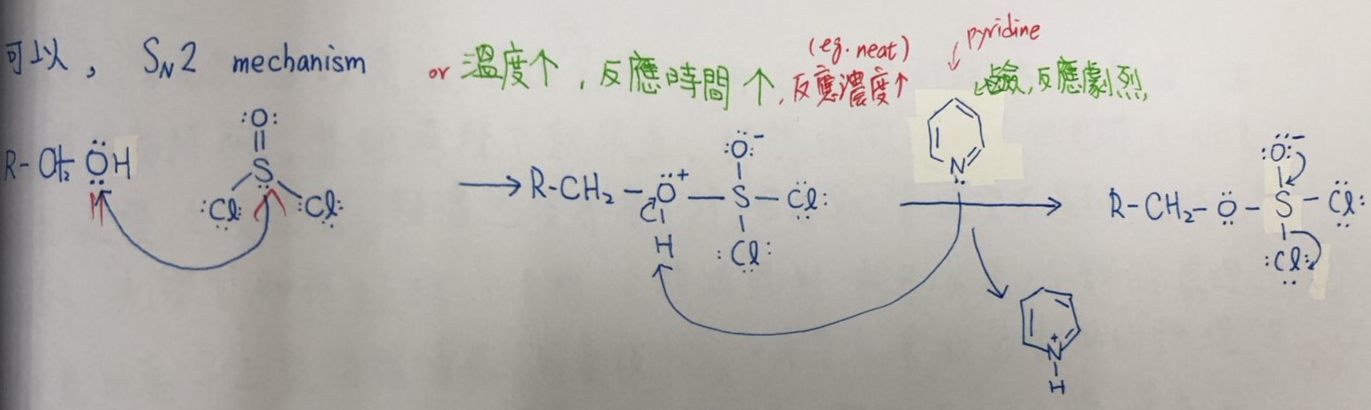 可以, SN2 mechanism or 溫度个, 反應時間个, 反應濃度↑ (eg. neat) pyridine 鹼, 反應劇烈
:O:
R-CH2-ÖH S :Cl Cl:
R-CH2-O+-S-Cl: :O:- H :Cl:
N
R-CH2-O-S-Cl: :O:- :Cl:
N+
H